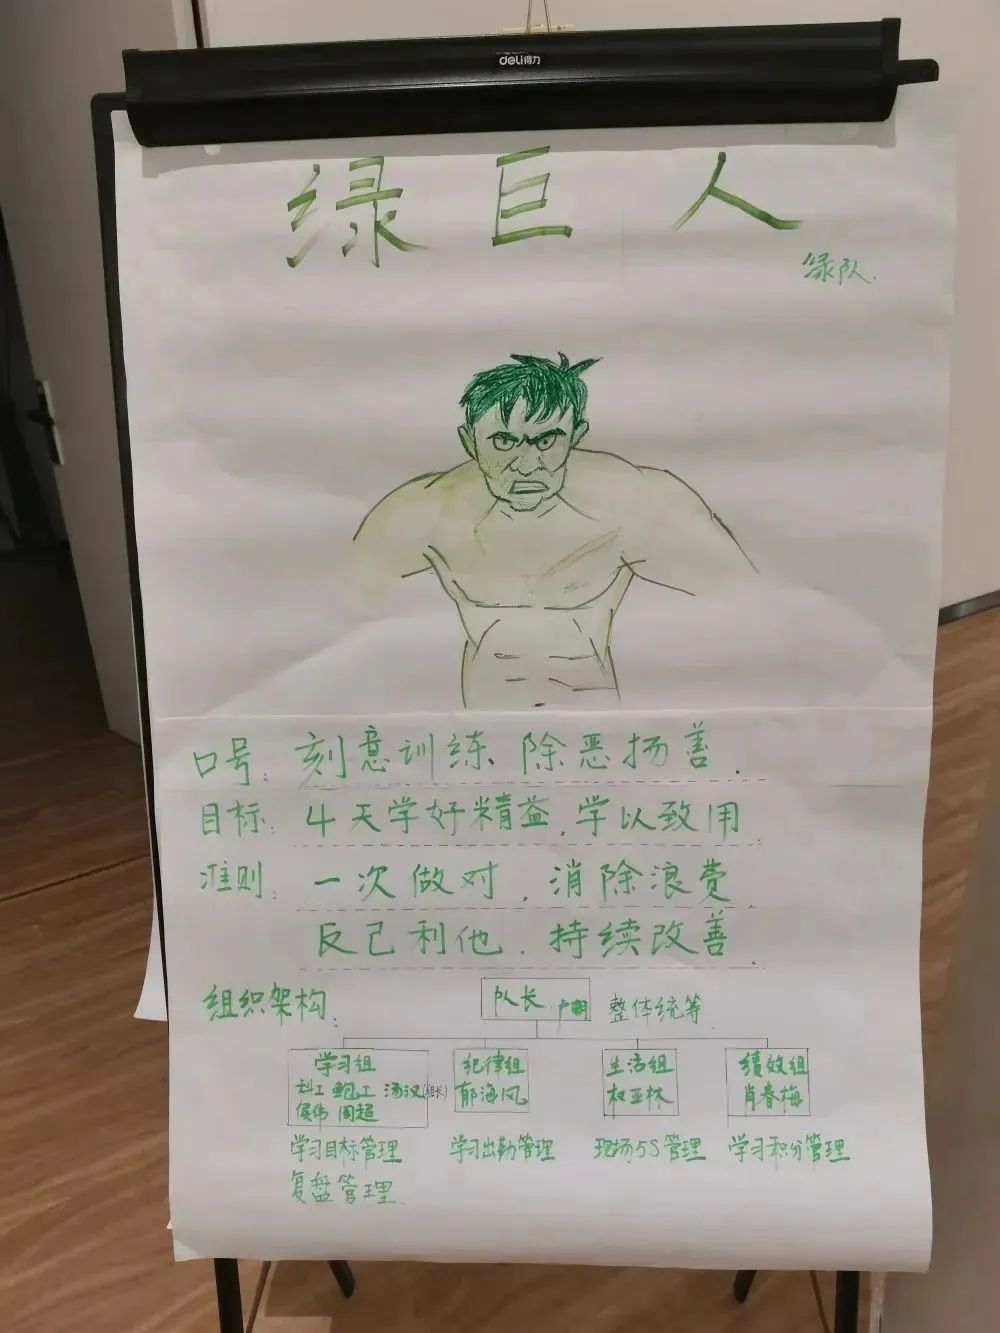 deli得力
绿巨人
绿队.
口号: 刻意训练 除恶扬善.
目标: 4天学好精益,学以致用.
准则: 一次做对,消除浪费.
反己利他.持续改善.
组织架构:
队长 整体统筹
学习组 纪律组 生活组 绩效组
科工 鲍工 汤汉(组长) 郁海凤 权亚林 肖春梅
侯伟 周超
学习目标管理 学习出勤管理 现场5S管理 学习积分管理
复盘管理.